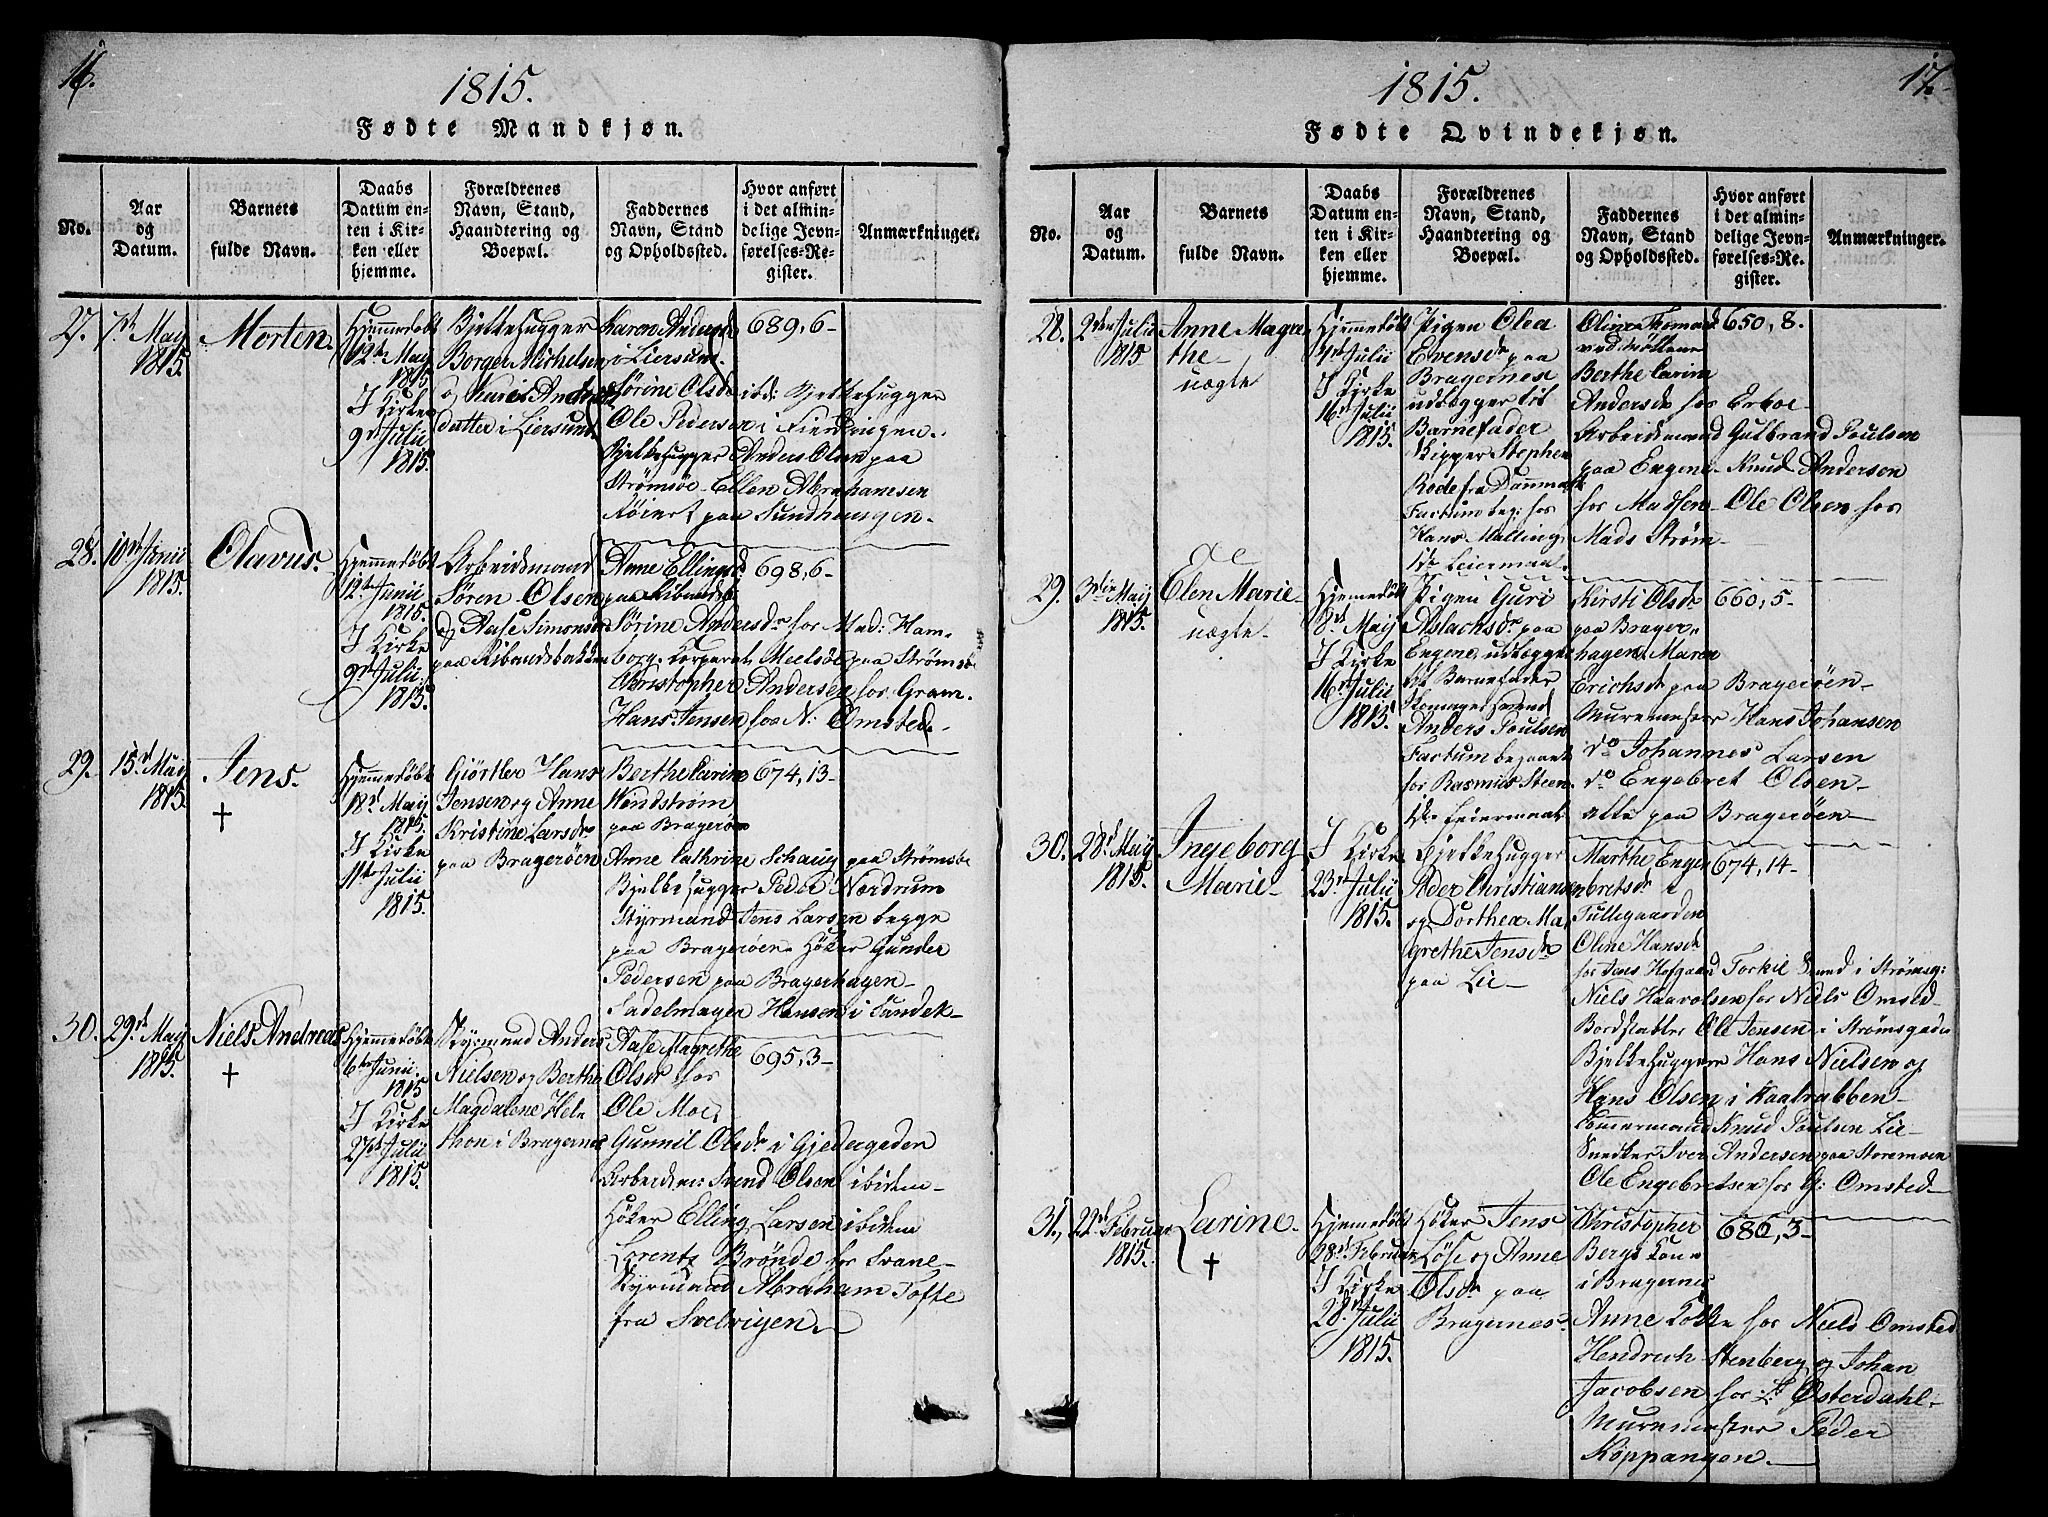 16.
1815.
Fødte Mandkjøn.
No.
Aar
og
Datum.
Barnets
fulde Navn.
Daabs
Datum en-
ten i Kir-
ken eller
hjemme.
Forældrenes
Navn, Stand,
Haandtering og
Boepæl.
Faddernes
Navn, Stand
og Opholdssted.
Hvor anført
i det almin-
delige Jevn-
førelses-Re-
gister.
Anmærkninger.
27.
7de May
1815.
Morten.
Hjemmedøbt
12te May
1815
I Kirke
9de Julii
1815.
Bjelkehugger
Borger Michelsen
og Kari Anders
datter i Liersund.
Karen Andersd
i Liersund.
Sørine Olsdr ibd: Bjelkehugger
Ole Pedersen i Fierdingen.
Bjelkehugger Anders Olsen paa
Strømsøe. Ellen Abrahamsen
Røiert paa Sundhaugen.
689, 6-
28.
10de Junii
1815.
Olavus.
Hjemmedøbt
12te Junii
1815.
I Kirke
9de Julii
1815.
Arbeidsmand
Søren Olsen
og Aase Simonsdr
paa Ribandsbakken
Anne Ellingsd.
paa Ribandsb
Sørine Andersdr hos Mad: Ham-
borg. Corporal Meelsøe paa Strømsø
Christopher Andersen hos Gram.
Hans Jensen hos N: Omsted.
698, 6-
29.
15de May
1815.
Jens.
†
Hjemmedøbt
18de May
1815.
I Kirke
11te Julii
1815.
Giørtler Hans
Jensen og Anne
Kristine Larsdr
paa Bragerøen
Berthe Carine
Wendstrøm
paa Bragerøen
Anne Cathrine Schaug paa Strømsøe
Bjelkehugger Peder Nordrum
Styrmand Jens Larsen begge
paa Bragerøen. Høker Gunder
Pedersen paa Bragerhagen-
Sadelmager Hansen i Sundek-
674, 13-
30.
29de May
1815.
Niels Andreas
†
Hjemmedøbt
6te Junii.
1815
I Kirke
27de Julii
1815.
Styrmand Anders
Nielsen og Berthe
Magdalene Hele
thon i Bragernes
Aase Magrethe
Olsdr hos
Ole Moe,
Gunnil Olsdr i Gjedergaden
Arbeidsm: Svend Olsen ibidem-
Høker Elling Larsen ibidem
Lorentz Brønde hos Svane-
Styrmand Abraham Tofte
fra Svelvigen.
695, 3-
17.
1815.
Fødte Qvindekjøn.
No.
Aar
og
Datum.
Barnets
fulde Navn.
Daabs
Datum en-
ten i Kir-
ken eller
hjemme.
Forældrenes
Navn, Stand,
Haandtering og
Boepæl.
Faddernes
Navn, Stand
og Opholdssted.
Hvor anført
i det almin-
delige Jevn-
førelses-Re-
gister.
Anmærkninger.
28.
2den Julii
1815
Anne Magre
the-
uægte
Hjemmedøbt
4de Julii
I Kirke
16de Julii
1815.
Pigen Olea
Evensdr paa
Bragernese
udlægger til
Barnefader
Skipper Stephen
Rode fra Danmark
Factum beg: hos
Hans Malling,
1te Leiermaal.
Oline Thomasd
Berthe Carine
Andersdr hos Erboe-
Arbeidsmand Gulbrand Poulsen
paa Engene- Knud Andersen
hos Madsen- Ole Olsen hos
Mads Strøm-
650, 8.
29.
3die May
1815.
Elen Marie-
uægte-
Hjemedøbt
8de May
I Kirke
16de Julii
1815.
Pigen Guri
Aslachsdr paa
Engene, udlægger
til Barnefader
Skomagersvend
Anders Poulsen
Factum begaaet
hos Rasmus Steen
1te Leiermaal
Kirsti Olsdr
paa Brager-
hagen. Maren
Erichsdr paa Bragerøen-
Muremester Hans Johansen
do Johannes Larsen
do Engebret Olsen-
alle paa Bragerøen-
660, 5-
30.
28de May
1815.
Ingeborg
Marie-
I Kirke
23de Julii
1815.
Bjelkehugger
Peder Christiansen
og Dorthea Ma
grethe Jensdr
paa Lie-
Marthe Enge
bretsdr i
Tullegaarden
Oline Hansdr
hos Jens Hofgaard Torkil Svend i Strømsg:
Niels Haavolsen hos Niels Omsted-
Bordstabler Ole Jensen i Strømsgaden
Bjelkehugger Hans Nielsen og
Hans Olsen i Kaalrabben-
Tømmermand Knud Poulsen Lie-
Snedker Iver Andersen paa Storemoen
Ole Engebretsen hos G: Omsted-
674, 14-
31.
22de Februar
1815.
Larine-
†
Hjemmedøbt
28de Februar
I Kirke
28de Julii
1815.
Høker Jens
Løse og Anne
Olsdr paa
Bragernes.
Christopher
Bergs Kone
i Bragernes
Anne Lokke hos Niels Omsted
Hendrich Stenberg og Johan
Jacobsen hos P Østerdahl-
Muremester Peder
Koppangen-
686, 3-